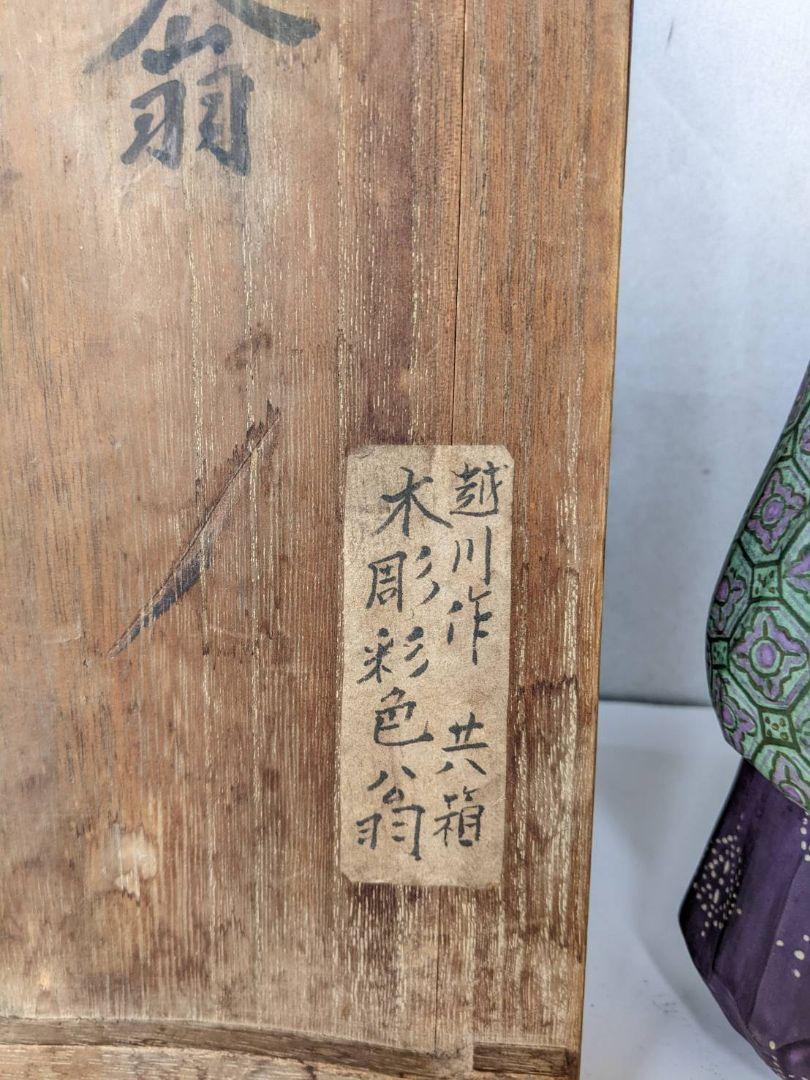 翁
越川作 共箱
木彫彩色翁